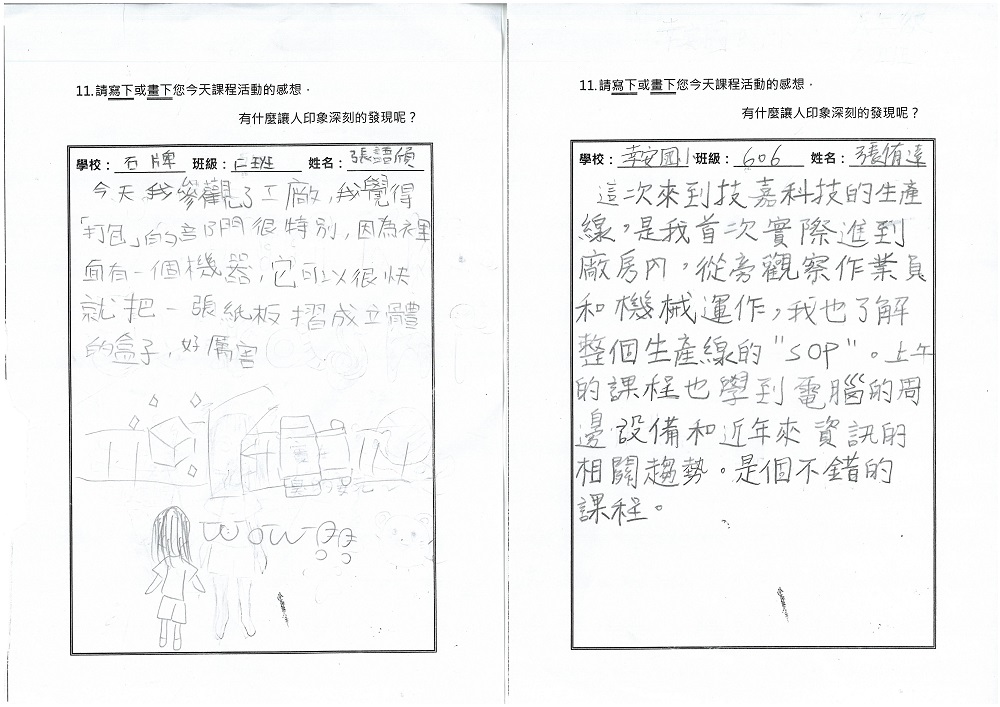 11.請寫下或畫下您今天課程活動的感想．
有什麼讓人印象深刻的發現呢？
學校： 石牌 班級： 仁班 姓名： 張譜頎
今天我參觀了工廠，我覺得
「打包」的部門很特別，因為裡
面有一個機器，它可以很快
就把一張紙板摺成立體
的盒子，好厲害
wow!!
11.請寫下或畫下您今天課程活動的感想．
有什麼讓人印象深刻的發現呢？
學校： 幸安國小 班級： 606 姓名： 張侑遠
這次來到技嘉科技的生產
線，是我首次實際進到
廠房內，從旁觀察作業員
和機械運作，我也了解
整個生產線的"SOP"。上午
的課程也學到電腦的周
邊設備和近年來資訊的
相關趨勢。是個不錯的
課程。